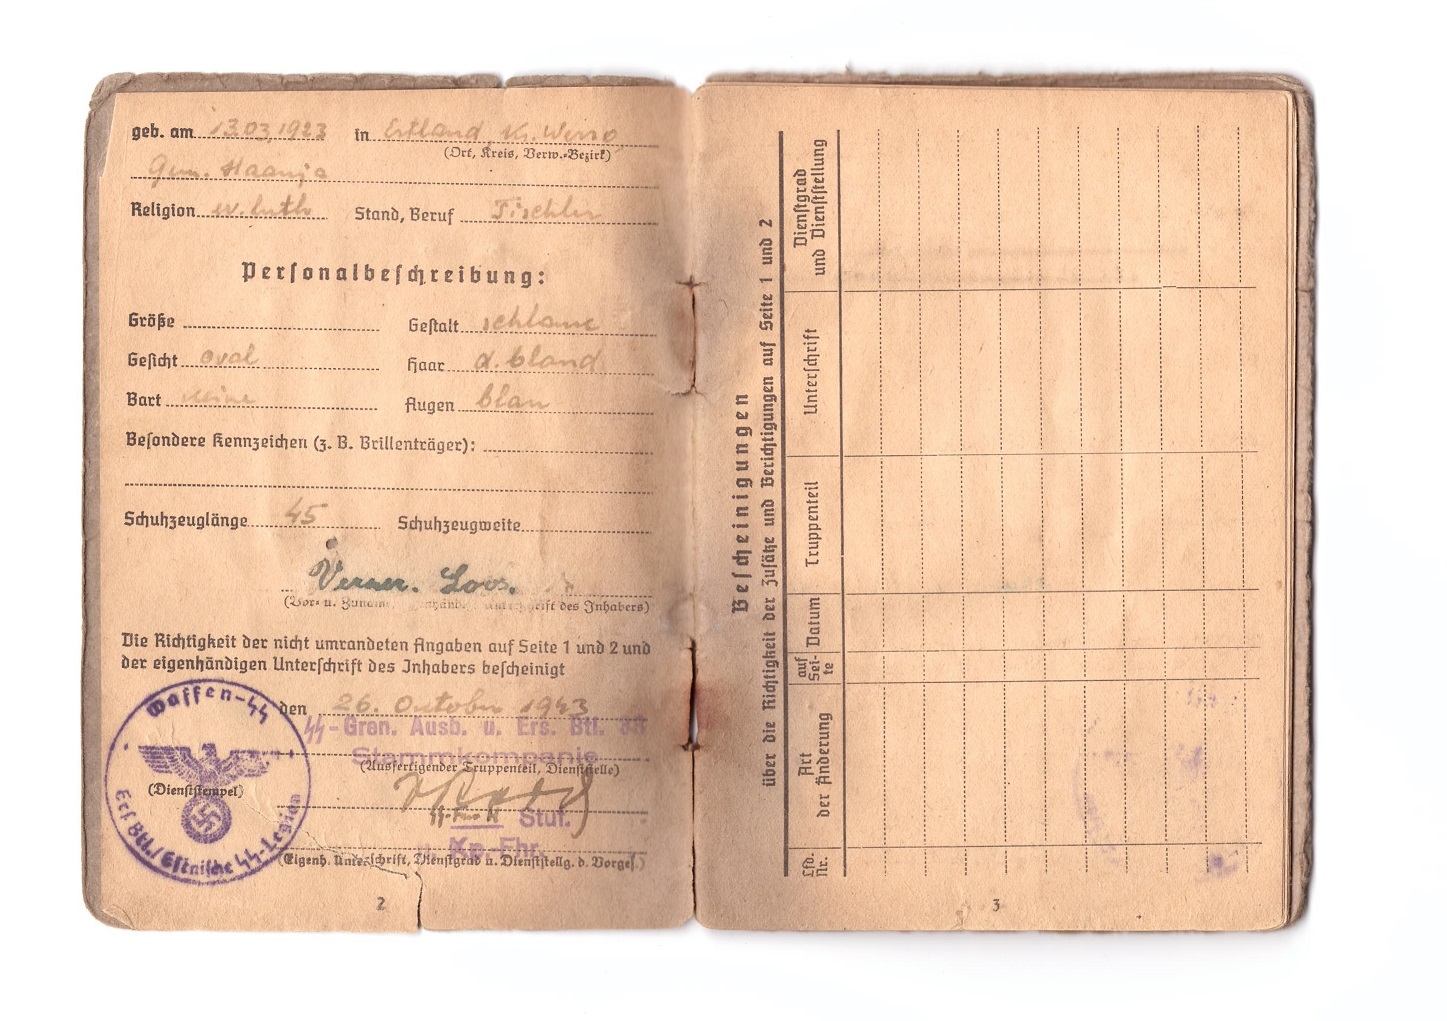 geb. am 13.03.1923 in Estland, Kr. Werro
(Ort, Kreis, Verw.-Bezirk)
Gem. Haanja
Religion ev. luth Stand, Beruf Tischler
Personalbeschreibung:
Größe Gestalt schlank
Gesicht oval Haar d. bland
Bart keine Augen blau
Besondere Kennzeichen (z. B. Brillenträger):
Schuhzeuglänge 45 Schuhzeugweite
Verner. Loos.
(Vor- u. Zuname, Unterschrift des Inhabers)
Die Richtigkeit der nicht umrandeten Angaben auf Seite 1 und 2 und
der eigenhändigen Unterschrift des Inhabers bescheinigt
den 26. October 1943
SS-Gren. Ausb. u. Ers. Btl.
Stammkompanie
(Ausfertigender Truppenteil, Dienststelle)
Waffen-SS
Ers. Btl./Estnische SS-Legion
(Dienststempel)
Stuf.
Kp.-Fhr.
(Eigenh. Unterschrift, Dienstgrad u. Dienststellg. d. Vorges.)
2
Bescheinigungen
über die Richtigkeit der Zusätze und Berichtigungen auf Seite 1 und 2
Lfd. Nr.
Art der Änderung
auf Sei-te
Datum
Truppenteil
Unterschrift
Dienstgrad und Dienststellung
3